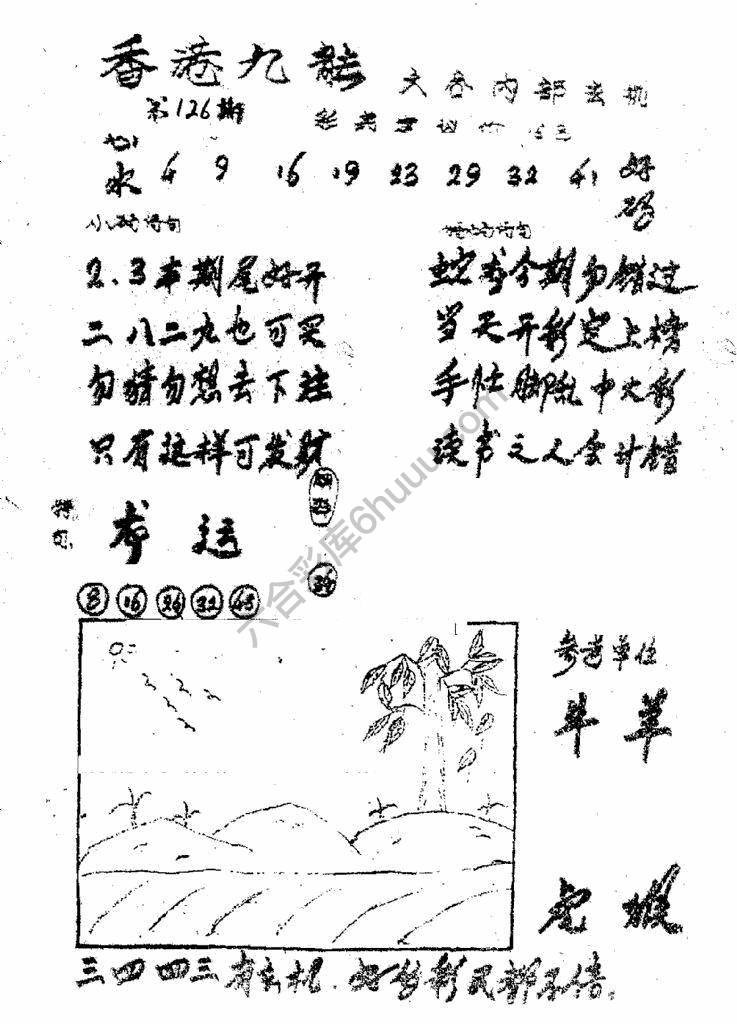 香港九龍
内部玄机
第126期
水 4 9 16 19 23 29 32 41 好码
2、3本期尾好开
二八二九也可买
勿猜勿想去下注
只有这样可发财
今期勿错过
当天开彩定上榜
手忙脚乱中大彩
读书之人会计错
运
36
8 16 26 32 43
参考单位
牛 羊
三四四三有玄机,好彩民都不信。
六合彩库6huuu.com